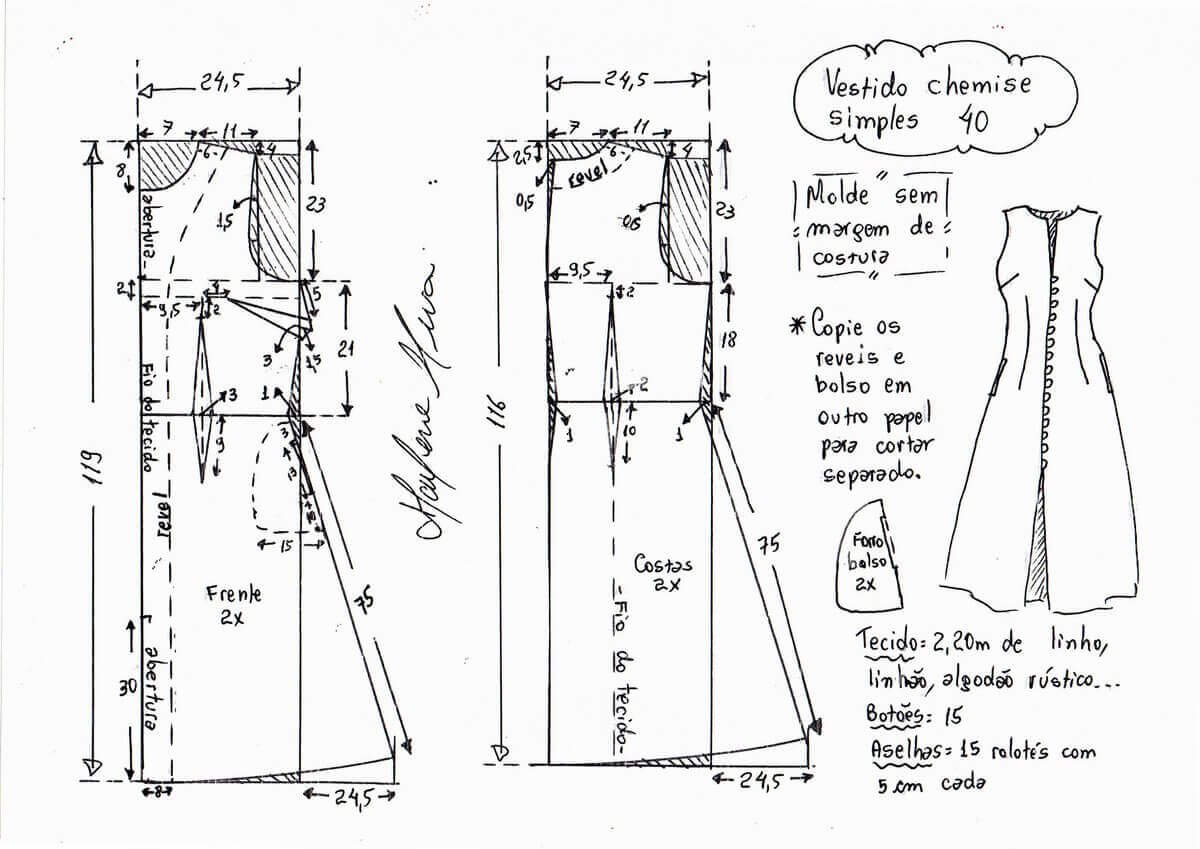 24,5
7
11
6
4
8
1,5
23
abertura
2
4
5
9,5
2
3
1,5
21
3
1
119
Fio do tecido
9
3
13
Revel
15
Frente
2x
75
30
abertura
8
24,5
24,5
7
11
2,5
6
4
revel
0,5
23
9,5
2
18
116
2
1
10
1
75
Costas
2x
Fio do tecido
24,5
Vestido chemise
simples 40
Molde sem
margem de
costura
* Copie os
reveis e
bolso em
outro papel
para cortar
separado.
Forro
bolso
2x
Tecido= 2,20m de linho,
linhão, algodão rústico...
Botões= 15
Aselhas= 15 rolotés com
5 cm cada